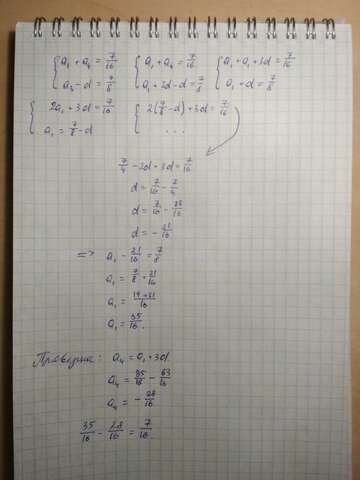 { a₁ + a₄ = 7/16 { a₁ + a₄ = 7/16 { a₁ + a₁ + 3d = 7/16
{ a₃ - d = 7/8 { a₁ + 2d - d = 7/8 { a₁ + d = 7/8
{ 2a₁ + 3d = 7/16 { 2(7/8 - d) + 3d = 7/16
{ a₁ = 7/8 - d { . . .
7/4 - 2d + 3d = 7/16
d = 7/16 - 7/4
d = 7/16 - 28/16
d = - 21/16
=> a₁ - 21/16 = 7/8
a₁ = 7/8 + 21/16
a₁ = 14+21/16
a₁ = 35/16.
Проверка: a₄ = a₁ + 3d.
a₄ = 35/16 - 63/16
a₄ = - 28/16
35/16 - 28/16 = 7/16.